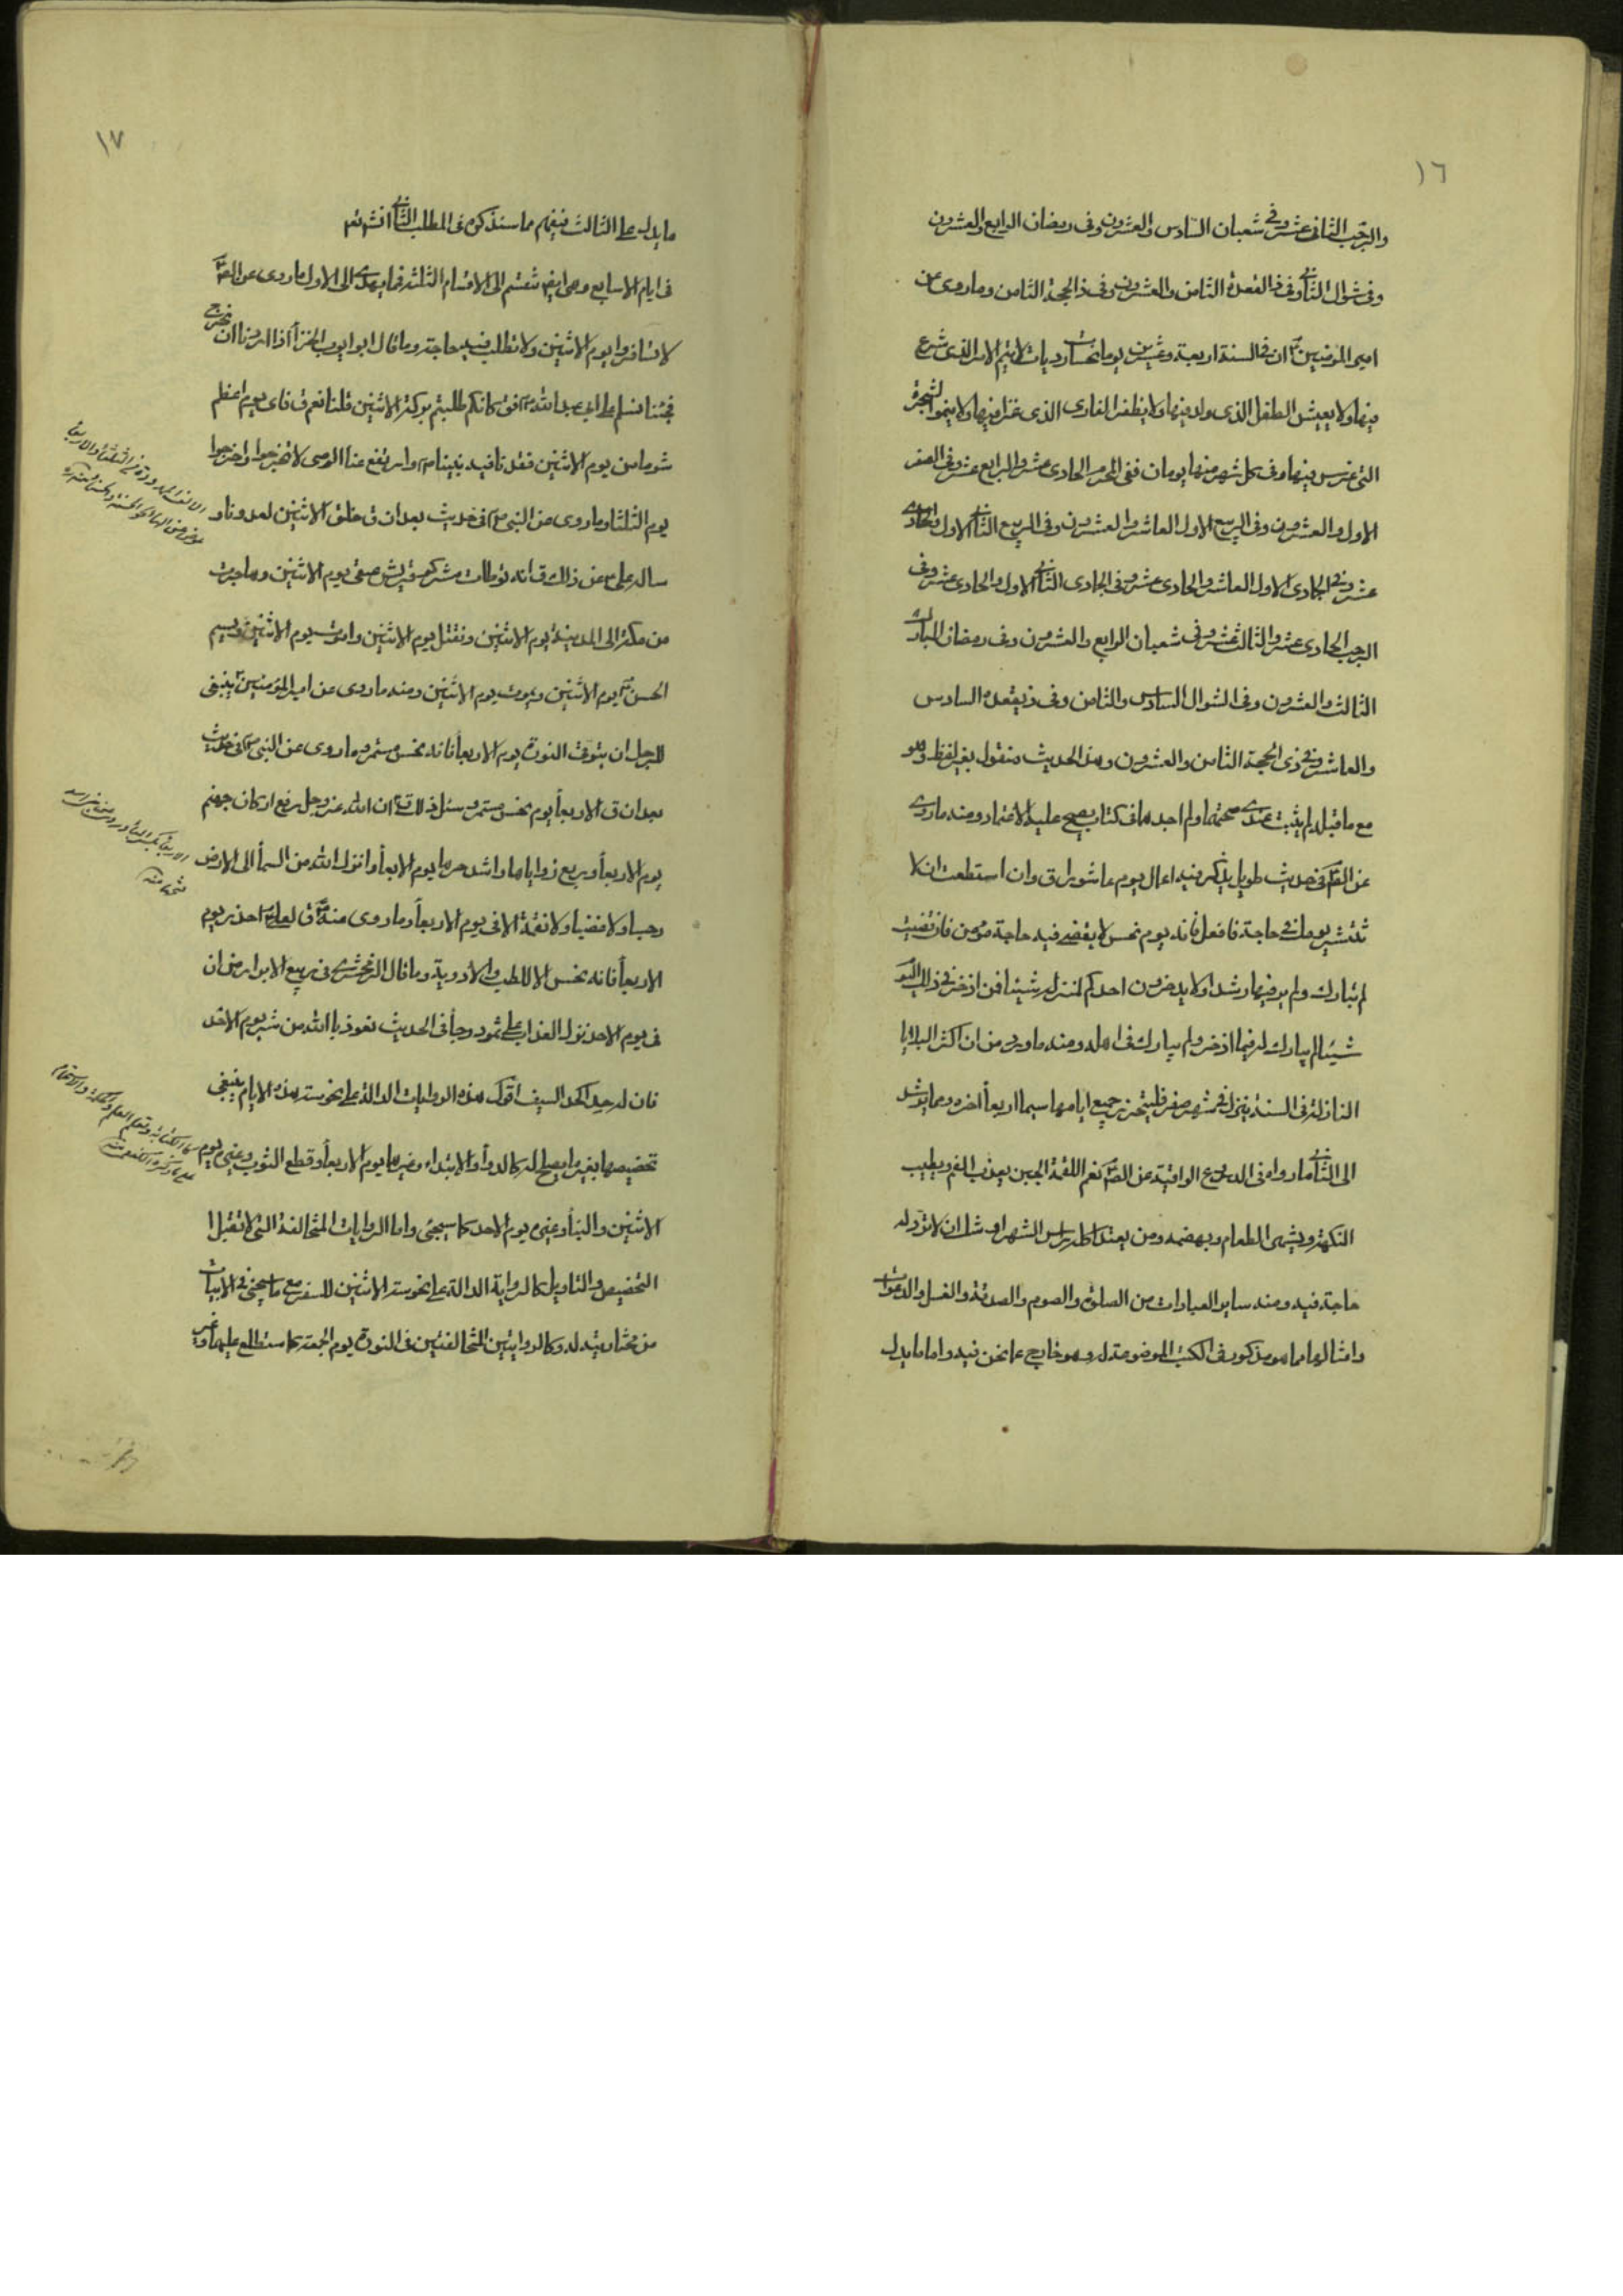 ١٦
والرجب الثانى عشر وفى شعبان السادس والعشرون وفى رمضان الرابع والعشرون
وفى شوال الثانى وفى ذ القعدة الثامن والعشرون وفى ذ الحجة الثامن وما روى عن
امير المؤمنين ان فى السنة اربعة وعشرين يوما نحسات رديات لا يتم الامر الذى شرع
فيها ولا يعيش الطفل الذى ولد فيها ولا يظفر الغازى الذى غزا فيها ولا ينمو الشجرة
التى غرس فيها وفى كل شهر منها يومان ففى المحرم الحادى عشر والرابع عشر وفى الصفر
الاول والعشرون وفى الربيع الاول العاشر والعشرون وفى الربيع الثانى الاول والحادى
عشر وفى الجمادى الاول العاشر والحادى عشر وفى الجمادى الثانى الاول والحادى عشر وفى
الرجب الحادى عشر والثالث عشر وفى شعبان الرابع والعشرون وفى رمضان المبارك
الثالث والعشرون وفى الشوال السادس والثامن وفى ذيقعدة السادس
والعاشر وفى ذى الحجة الثامن والعشرون وهذ الحديث منقول بغير لفظه وهو
مع ما قبله لم يثبت عندى صحتهما ولم اجدهما فى كتاب يصح عليه الاعتماد ومنه ما روى
عن فى حديث طويل يذكر فيه اعمال يوم عاشورا ق وان استطعت ان لا
تنتشر يومك فى حاجة فافعل فانه يوم نحس لا يقضى فيه حاجة مؤمن فان قضيت
لم تبارك ولم ير فيها رشدا ولا يدخرون احدكم لمنزله شيئا فمن ادخر فى ذلك اليوم
شيئا لم يبارك له فيما ادخر ولم يبارك فى اهله ومنه ما ورد من ان اكثر البلايا
النازلة فى السنة ينزل فى شهر صفر فليتحرز جميع ايامها سيما اربعا اخره ومما يرشد
الى الثانى ما رواه فى الدروع الواقية عن الصم نعم اللقمة الجبن يعذب الفم ويطيب
النكهة ويشهى الطعام ويهضمه ومن يعتمد اكله راس الشهر اوشك ان لا ترد له
حاجة فيه ومنه ساير العبادات من الصلوة والصوم والصدقة والغسل والدعوات
وامثالها مما هو مذكور فى الكتب الموضوعة له وهو خارج عما نحن فيه واما ما يدل
١٧
ما يدل على الثالث فيفهم مما سنذكره فى المطلب الثانى انش تعه
فى ايام الاسابيع وهى ايضا تنقسم الى الاقسام الثلثة فما يهدى الى الاول ما روى عن الصم
لا تسافروا يوم الاثنين ولا تطلب فيه حاجة وما قال ابو ايوب الخزاز اذا اردنا ان نخرج
فجئنا نسلم على ابى عبد الله فق كانكم طلبتم بركة الاثنين قلنا نعم ق فاى يوم اعظم
شوما من يوم الاثنين فقدنا فيه نبينا وارتفع عنا الوحى لا تخرجوا واخرجوا
يوم الثلثا وما روى عن النبى فى حديث بعد ان ق خلق الاثنين لعدونا و
ساله على عن ذلك ق انه توطات مشركو قريش صفى يوم الاثنين وهاجرت
من مكة الى المدينة يوم الاثنين ونقتل يوم الاثنين واموت يوم الاثنين ويسم
الحسن يوم الاثنين ويموت يوم الاثنين ومنه ما روى عن امير المؤمنين ينبغى
للرجل ان يتوقى النورة يوم الاربعا فانه نحس مستمر وما روى عن النبى فى حديث
بعد ان ق الاربعا يوم نحس مستمر ان الله عز وجل ربع اركان جهنم
يوم الاربعا وربع زواياها واشد حرها يوم الاربعا وانزل الله من السما الى الارض
رجسا ولا غضبا ولا نقمة الا فى يوم الاربعا وما روى عنه ق لعلى احذر يوم
الاربعا فانه نحس الا للطب والادوية وما قال الزمخشرى فى ربيع الابرار من ان
فى يوم الاحد نزل العذاب على ثمود وجا فى الحديث نعوذ بالله من شر يوم الاحد
فان له حد كحد السيف اقول هذه الروايات الدالة على نحوسته هذه الايام ينبغى
تخصيصها بغير ما يصلح له كالدوا والابتداء وغيرها يوم الاربعا وقطع الثوب وغيره يوم
الاثنين والبنا وغيره يوم الاحد كما سيجئ واما الروايات المتخالفة التى لا تقبل
التخصيص والتاويل كالرواية الدالة على نحوسة الاثنين للسفر مع ما سيجئ فى الابيات
من مختاريته له وكالروايتين المتخالفتين فى النورة يوم الجمعة كما ستطلع عليها وغير